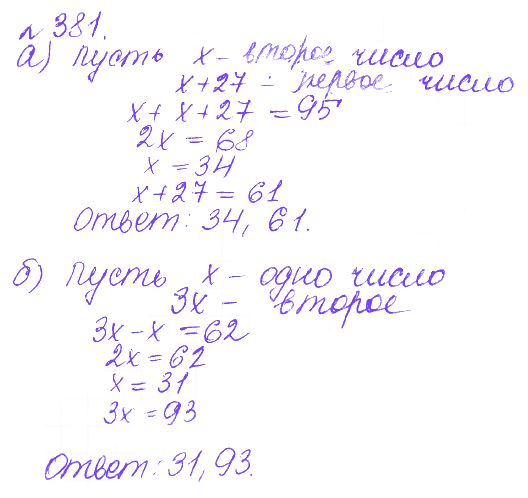 № 381.
а) Пусть x - второе число
x+27 - первое число
x + x+27 = 95
2x = 68
x = 34
x+27 = 61
Ответ: 34, 61.
б) Пусть x - одно число
3x - второе
3x - x = 62
2x = 62
x = 31
3x = 93
Ответ: 31, 93.